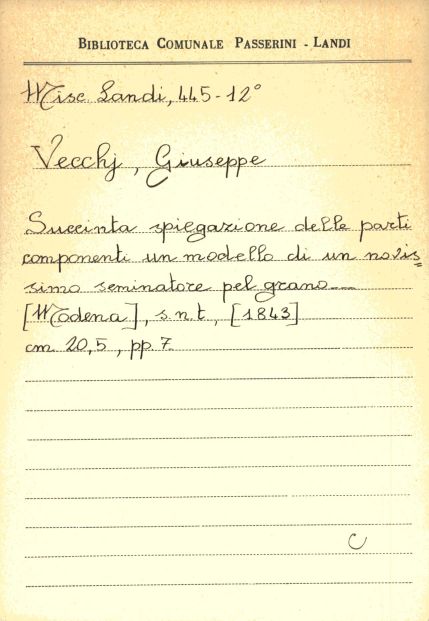 BIBLIOTECA COMUNALE PASSERINI - LANDI
Misc Landi, 445-12°
Vecchj, Giuseppe
Succinta spiegazione delle parti
componenti un modello di un novis=
simo seminatore pel grano---
[Modena], s.n.t, [1843]
cm 20,5, pp. 7.
C